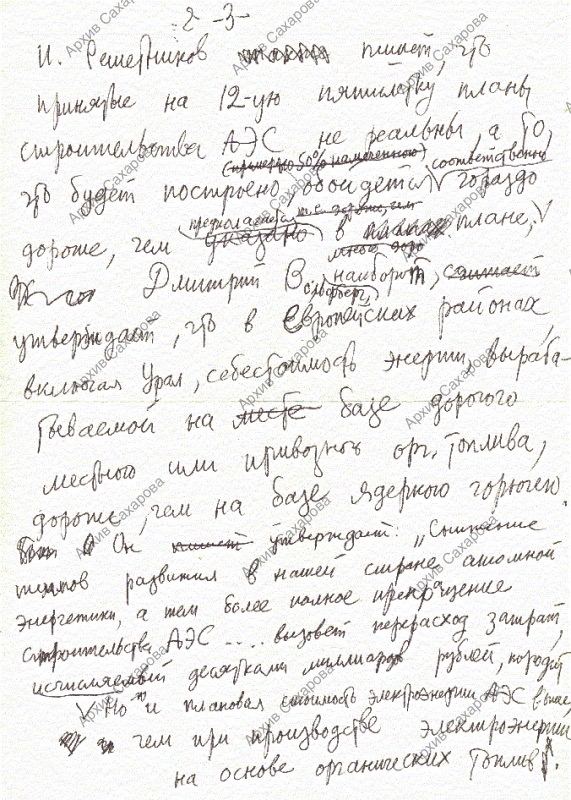 2 -3-
И. Решетников пишет, что
принятые на 12-ую пятилетку планы
строительства АЭС не реальны, а то,
(примерно 50% намеченного) соответственно
что будет построено, обойдется гораздо
предполагается
дороже, чем указано в плане,
много доро
Дмитрий Вольфберг, наоборот, считает
утверждает, что в Европейских районах,
включая Урал, себестоимость энергии, выраба-
тываемой на месте базе дорогого
местного или привозного орг. топлива,
дороже, чем на базе ядерного горючего.
Он пишет утверждает: „Снижение
темпов развития в нашей стране атомной
энергетики, а тем более полное прекращение
строительства АЭС .... вызовет перерасход затрат,
исчисляемый десятками миллиардов рублей,
Но и плановая стоимость электроэнергии АЭС выше,
чем при производстве электроэнергии
на основе органических топлив.
Архив Сахарова